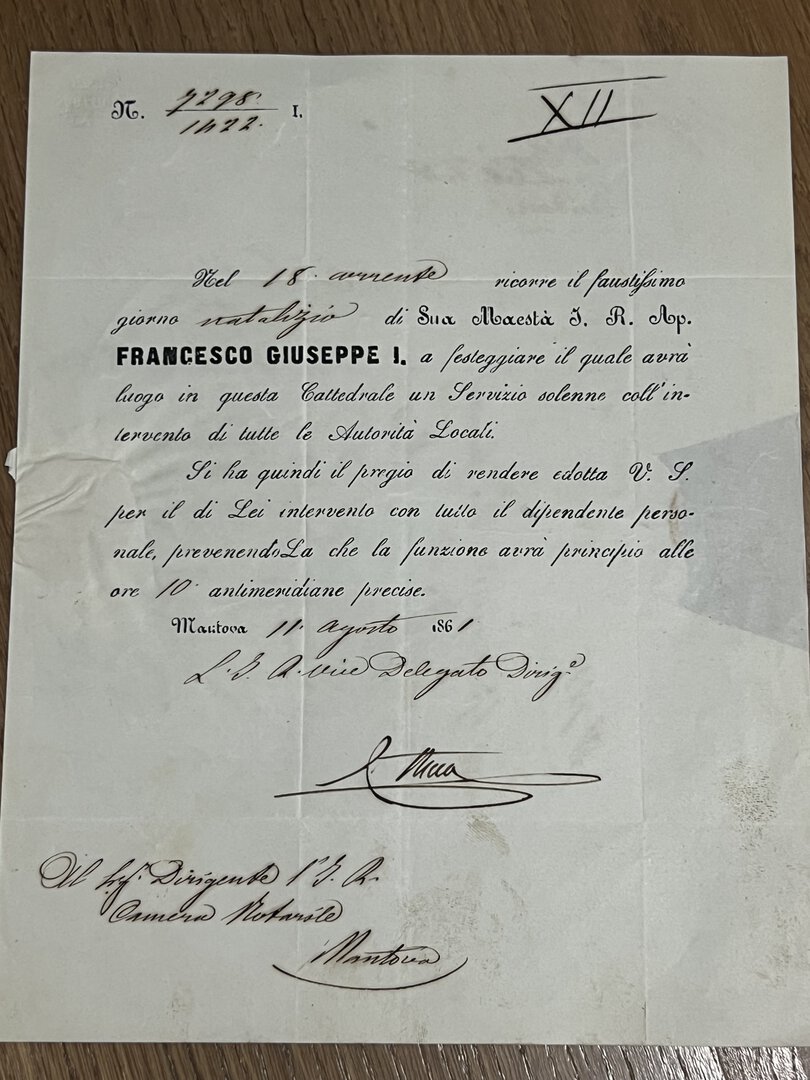 N. 7298 I.
1422.
XII
Nel 18. corrente ricorre il faustissimo
giorno natalizio di Sua Maestà I. R. Ap.
FRANCESCO GIUSEPPE I. a festeggiare il quale avrà
luogo in questa Cattedrale un Servizio solenne coll'in-
tervento di tutte le Autorità Locali.
Si ha quindi il pregio di rendere edotta V. S.
per il di Lei intervento con tutto il dipendente perso-
nale, prevenendoLa che la funzione avrà principio alle
ore 10. antimeridiane precise.
Mantova 11. Agosto 1861
L. I. R. Vice Delegato Dirig.e
Al Sig.r Dirigente l'I. R.
Camera Notarile
Mantova